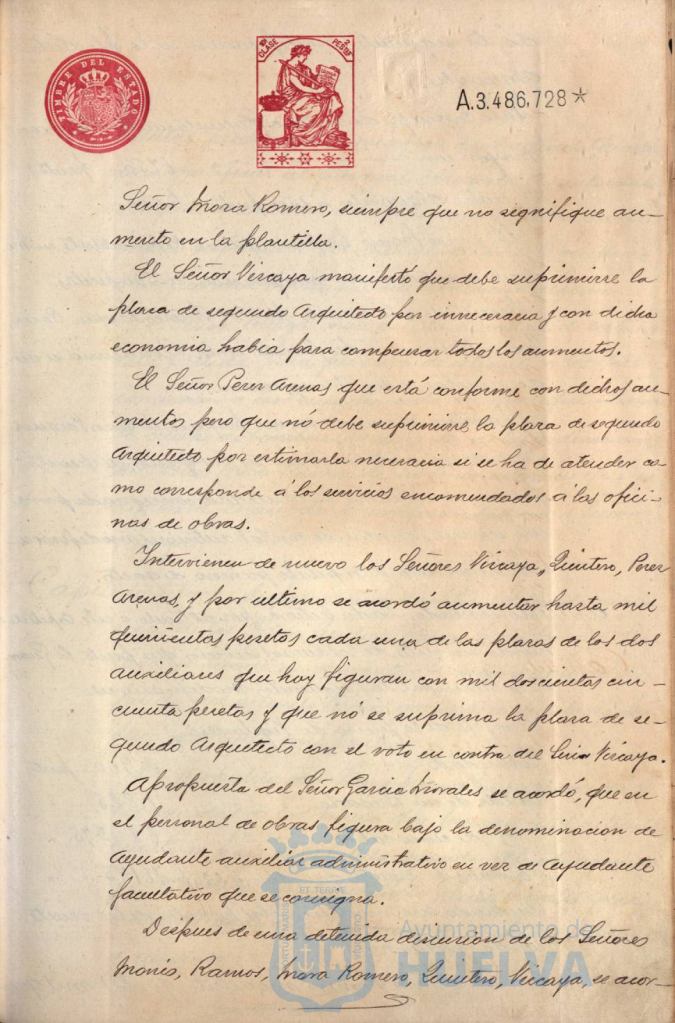 TIMBRE DEL ESTADO
10ª CLASE
2 PESETAS
A.3.486,728*
Señor Mora Romero, siempre que no signifique au-
mento en la plantilla.
El Señor Vizcaya manifestó que debe suprimirse la
plaza de segundo Arquitecto por innecesaria y con dicha
economia habia para compensar todos los aumentos.
El Señor Perez Arenas que está conforme con dichos au-
mentos pero que nó debe suprimirse la plaza de segundo
Arquitecto por estimarla necesaria si se ha de atender co-
mo corresponde á los servicios encomendados á las ofici-
nas de obras.
Intervienen de nuevo los Señores Vizcaya, Quintero, Perez
Arenas, y por ultimo se acordó aumentar hasta mil
quinientas pesetas cada una de las plazas de los dos
auxiliares que hoy figuran con mil doscientas cin-
cuenta pesetas y que nó se suprima la plaza de se-
gundo Arquitecto con el voto en contra del Señor Vizcaya.
A propuesta del Señor Garcia Morales se acordó, que en
el personal de obras figura bajo la denominacion de
Ayudante auxiliar administrativo en vez de Ayudante
facultativo que se consigna.
Despues de una detenida discusion de los Señores
Monis, Ramos, Mora Romero, Quintero, Vizcaya, se acor-
Ayuntamiento de
HUELVA